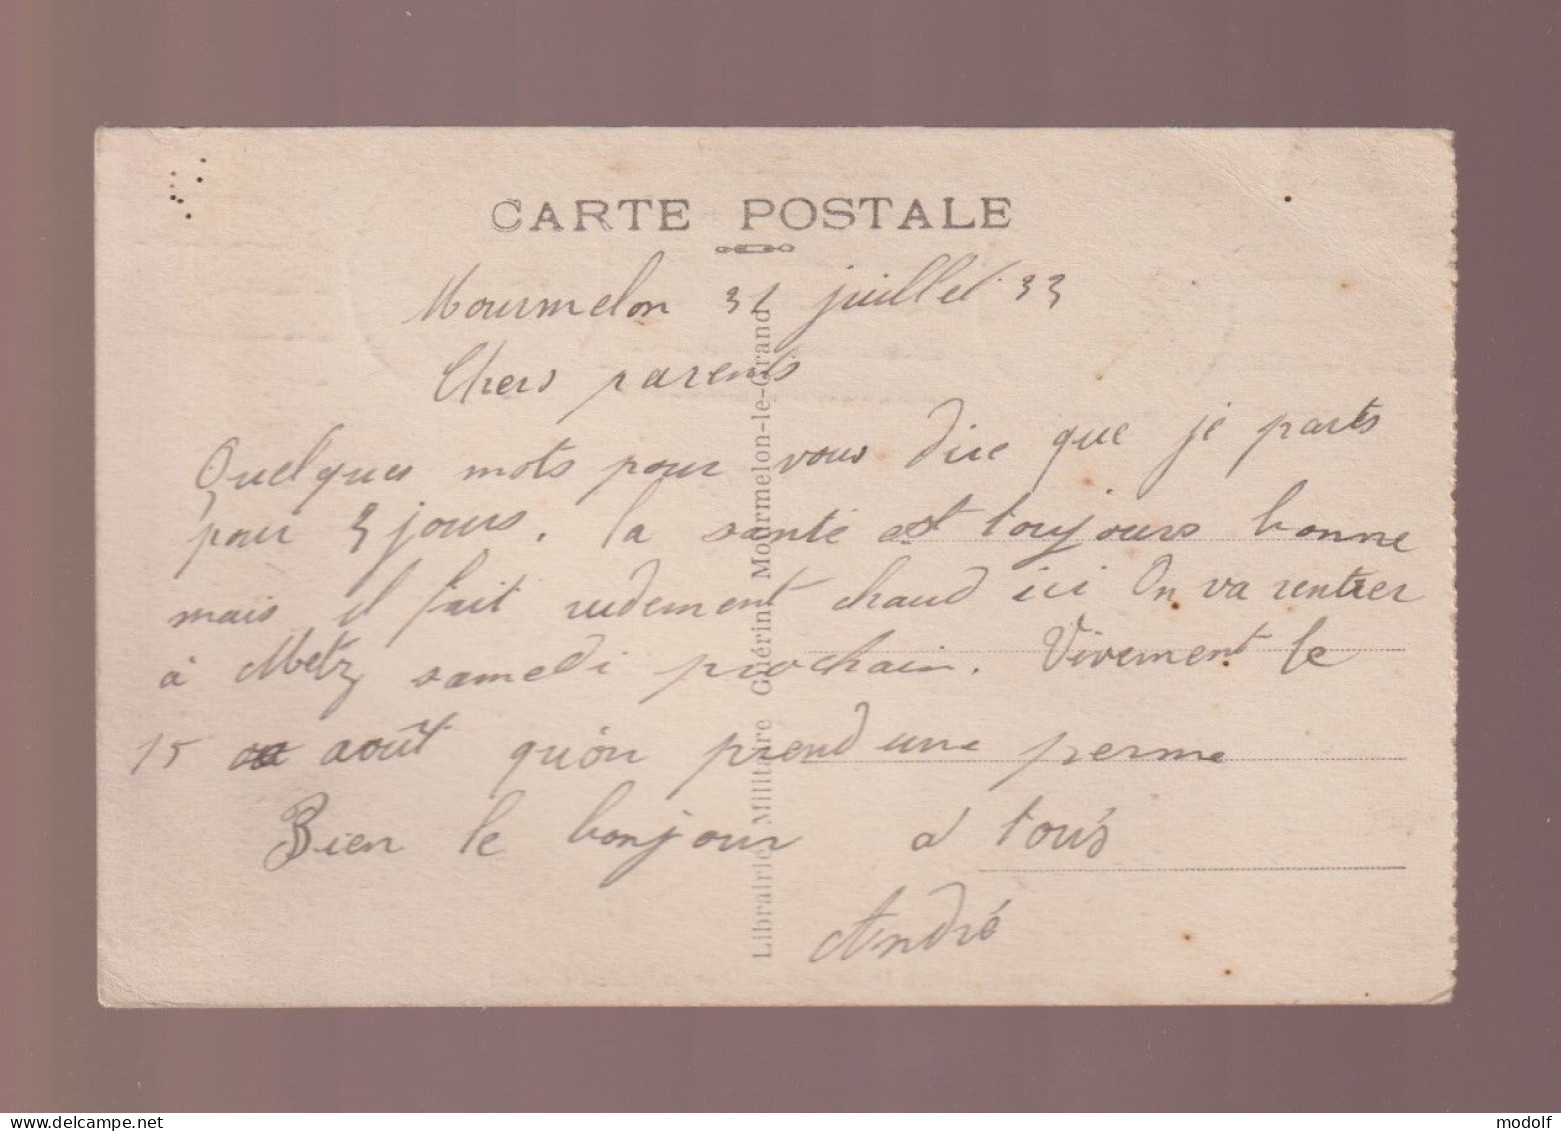 CARTE POSTALE
Mourmelon 31 juillet 33
Chers parents
Quelques mots pour vous dire que je parts
pour 3 jours. la santé est toujours bonne
mais il fait rudement chaud ici On va rentrer
à Metz samedi prochain. Vivement le
15 août qu'on prend une perme
Bien le bonjour à tous
André
Librairie Militaire Guérin, Mourmelon-le-Grand
www.delcampe.net
modolf